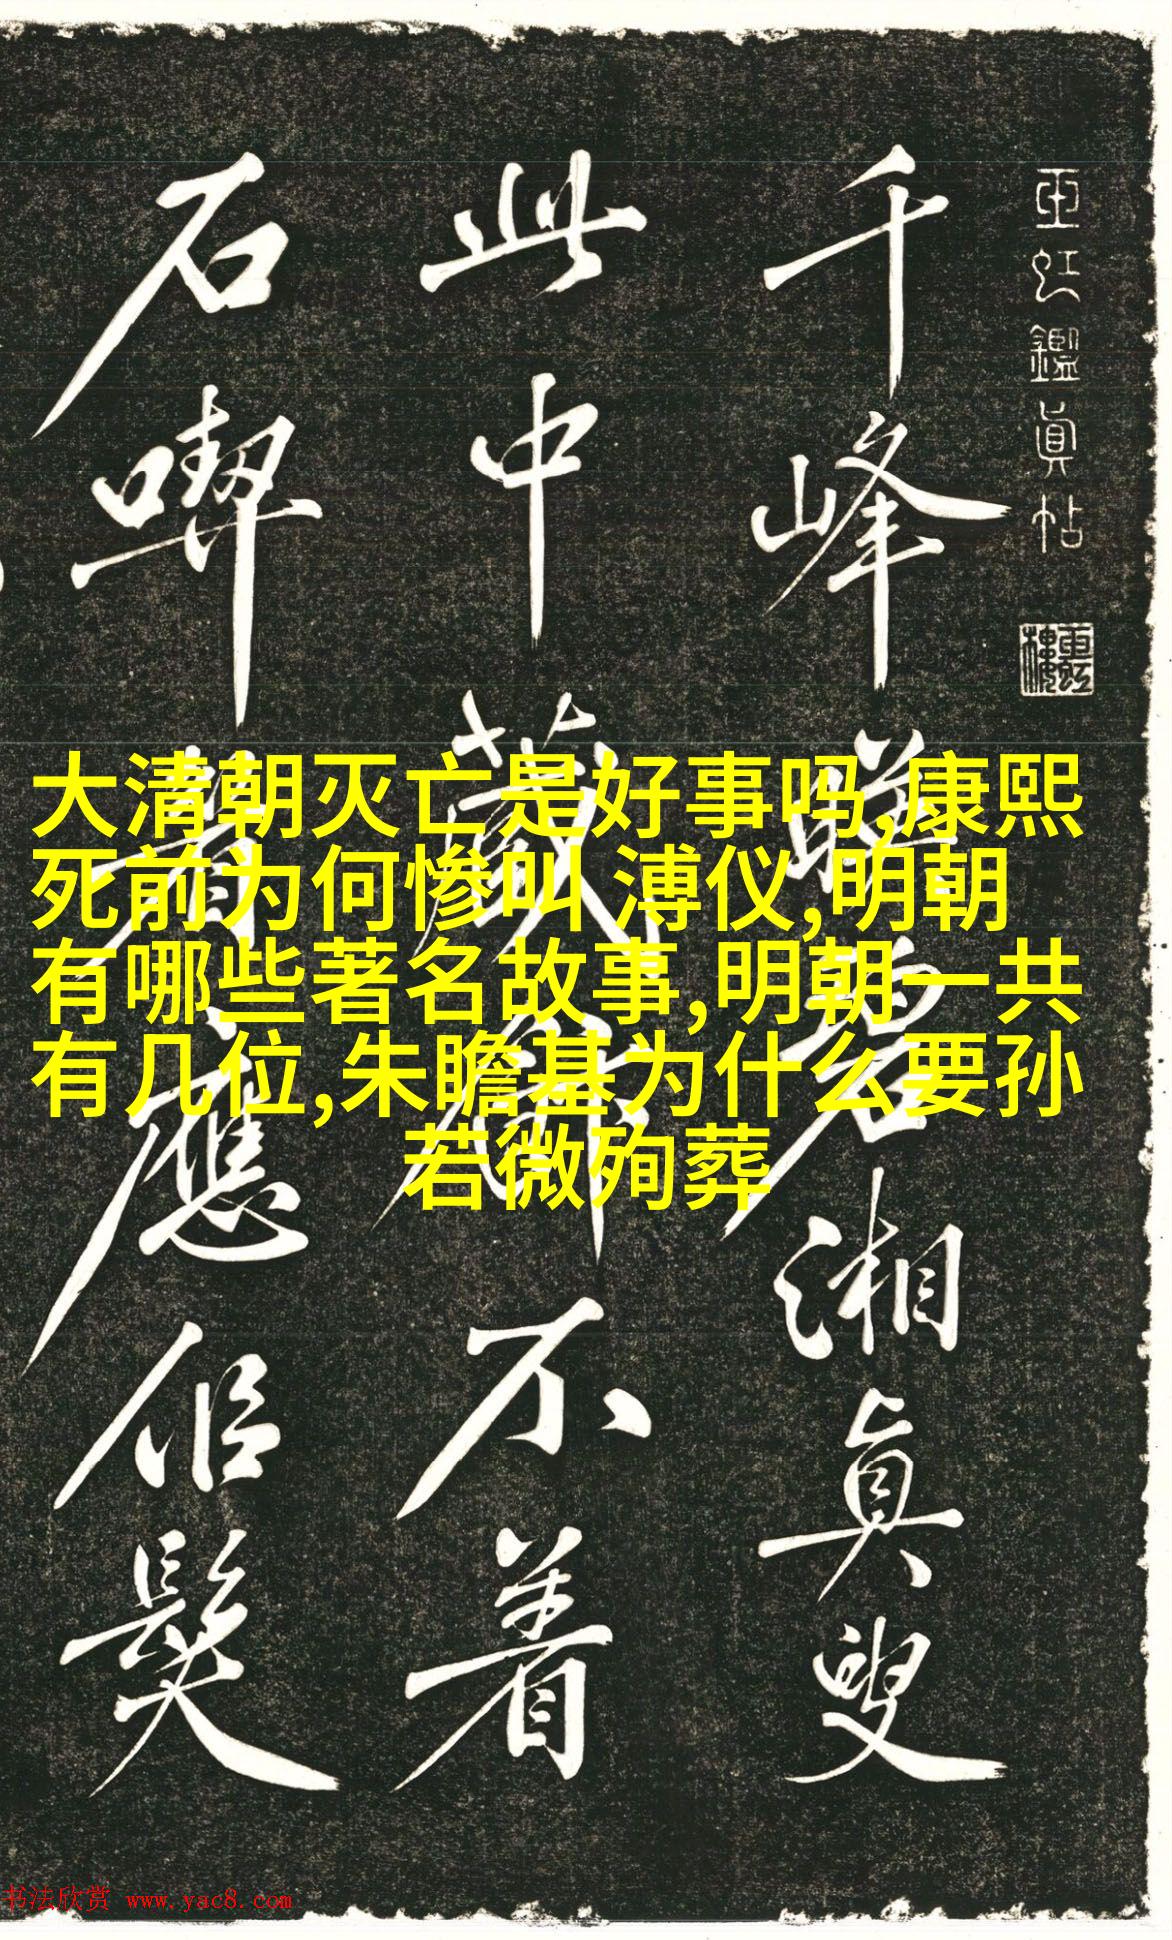 亞虹鑑眞帖
千峰碧湘眞叟
此中藏不着
石喫眉應伹髮
大清朝灭亡是好事吗,康熙
死前为何惨叫 溥仪,明朝
有哪些著名故事,明朝一共
有几位,朱瞻基为什么要孙
若微殉葬
书法欣赏 www.yac8.com